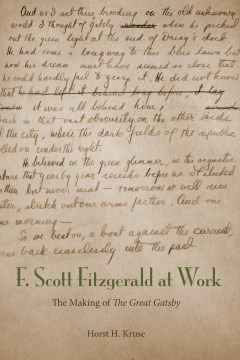 And as I sat there, brooding on the old unknown
world I thought of Gatsby when he picked
out the green light at the end of Daisy's dock.
He had come a long way to this blue lawn but
now his dream must have seemed so close that
he could hardly fail to grasp it. He did not know
that it lay
it was all behind him,
back in that vast obscurity on the other side
of the city, where the dark fields of the republic
olled on under the night.
He believed in the green glimmer, in the orgastic
year by year recedes before us. It eluded
then but never mind — tomorrow we will run
ster, stretch out our arms farther. And one
ne morning —
So we beat on, a boat against the current,
orne back ceaselessly into the past
F. Scott Fitzgerald at Work
The Making of The Great Gatsby
Horst H. Kruse